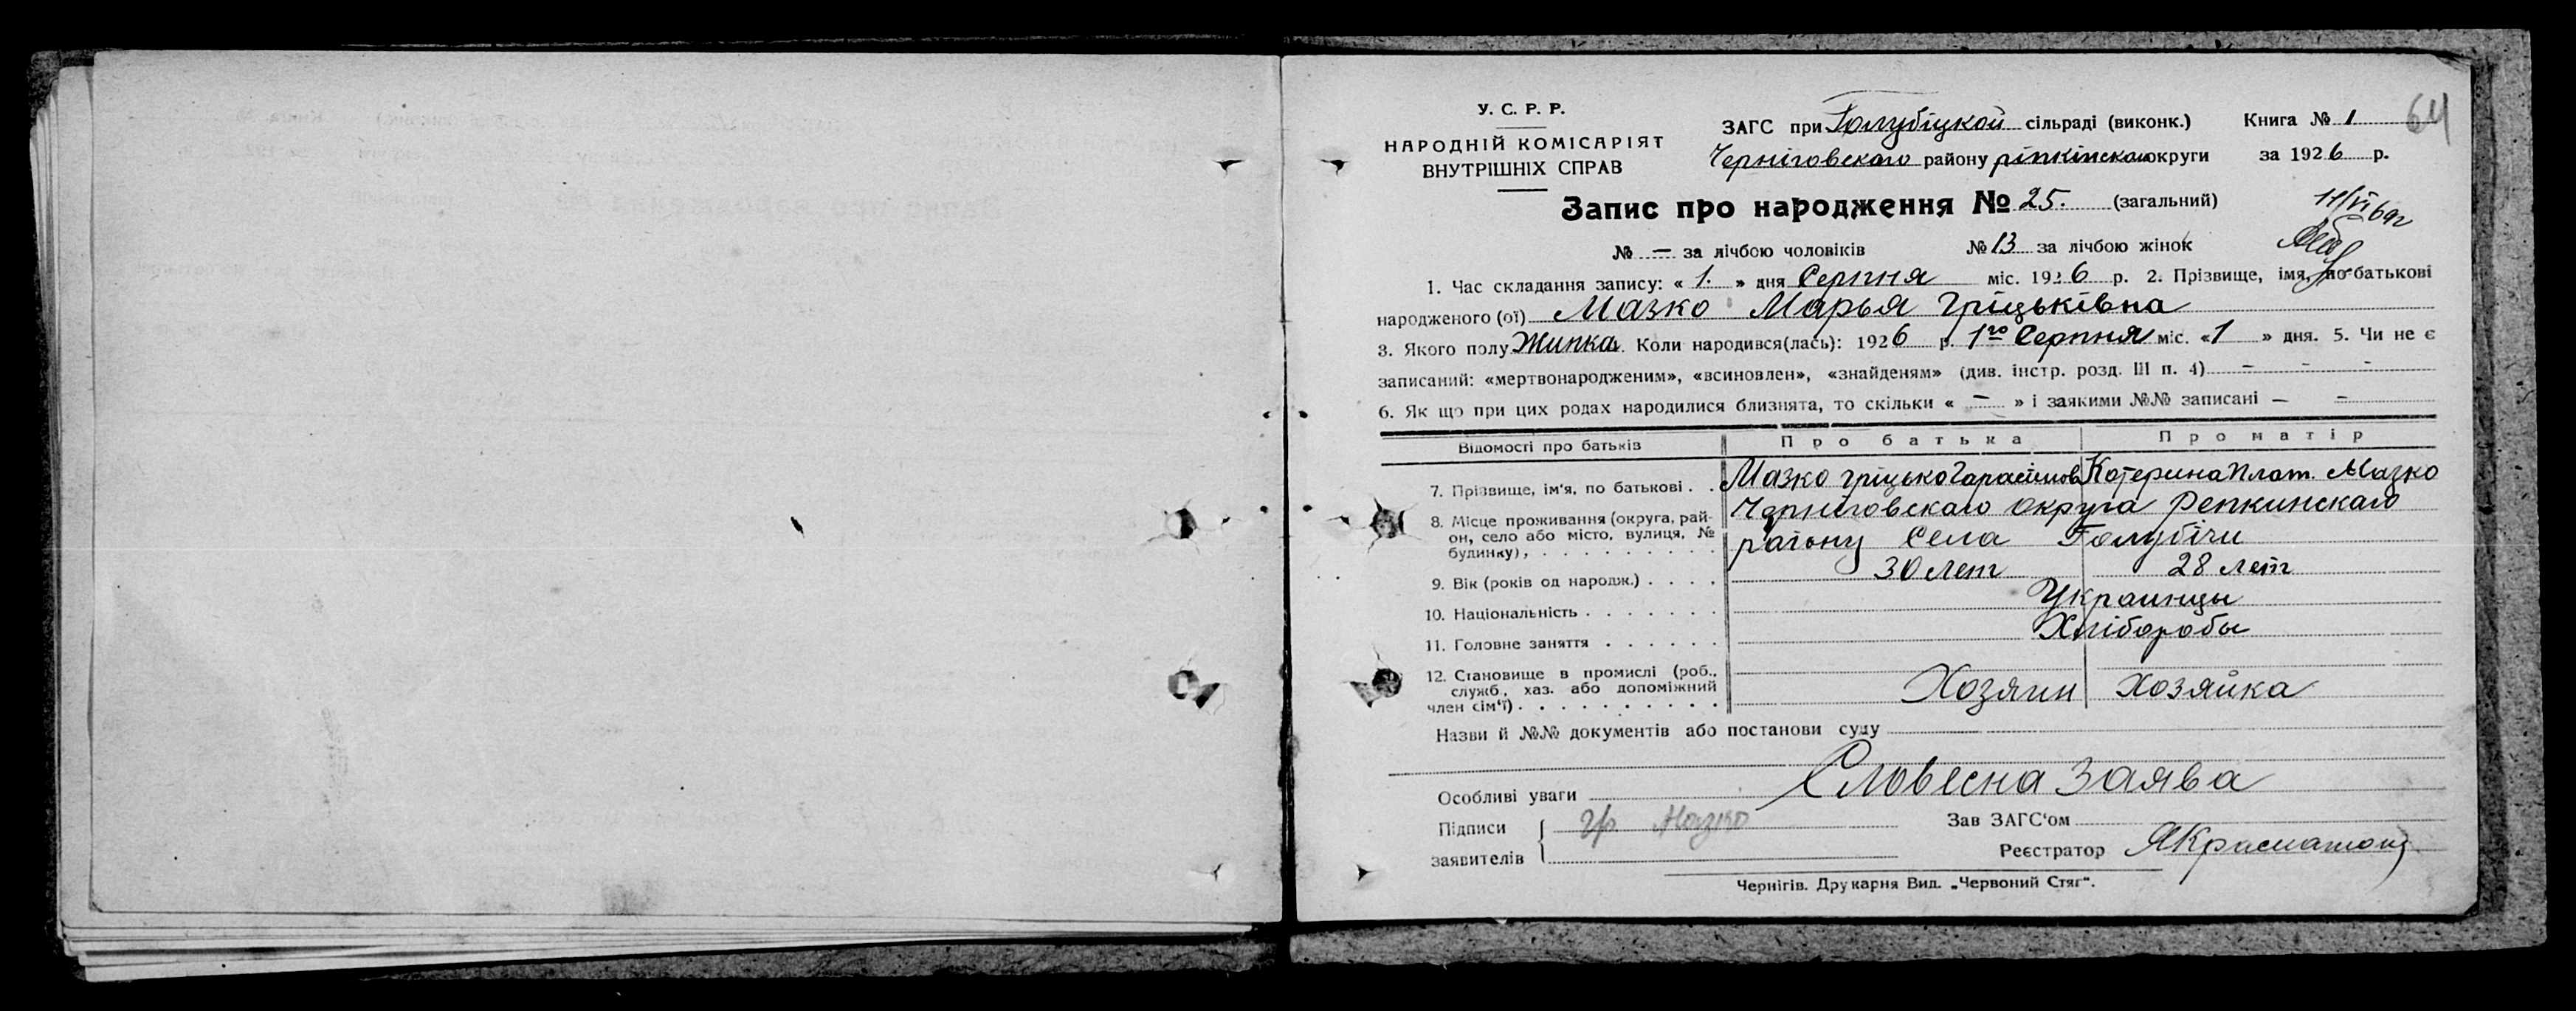 У. С. Р. Р.
НАРОДНІЙ КОМІСАРІЯТ
ВНУТРІШНІХ СПРАВ
ЗАГС при Голубіцкой сільраді (виконк.) Книга № 1 64
Черніговскаго району ріпкінскаго округи за 1926 р.
Запис про народження № 25. (загальний)
11/VI 69г
№ — за лічбою чоловіків № 13 за лічбою жінок
1. Час складання запису: « 1. » дня Серпня міс. 1926 р. 2. Прізвище, імя, по батькові
народженого (ої) Мазко Марья Гріцьківна
3. Якого полу Жинка Коли народився(лась): 1926 р. 1го Серпня міс. «1» дня. 5. Чи не є
записаний: «мертвонародженим», «всиновлен», «знайденям» (див. інстр. розд. III п. 4) — - -
6. Як що при цих родах народилися близнята, то скільки « — » і заякими №№ записані — —
Відомості про батьків Про батька Про матір
7. Прізвище, ім'я, по батькові . . Мазко Гріцько Гарасімов Котерина Плат. Мазко
8. Місце проживання (округа, рай- Черніговскаго округа Репкинскаго
он, село або місто, вулиця, № будинку), . . . . . . . . . . району Села Голубічи
9. Вік (років од народж.) . . . . 30 лет 28 лет
10. Національність . . . . . . . Украинцы
11. Головне заняття . . . . . . Хліборобы
12. Становище в промислі (роб.,
служб., хаз. або допоміжний
член сім'ї) . . . . . . . . . . Хозяин Хозяйка
Назви й №№ документів або постанови суду
Особливі уваги Словесна Заява
Підписи Гр. Мазко Зав ЗАГС'ом
заявителів Реєстратор
Чернігів. Друкарня Вид. „Червоний Стяг".